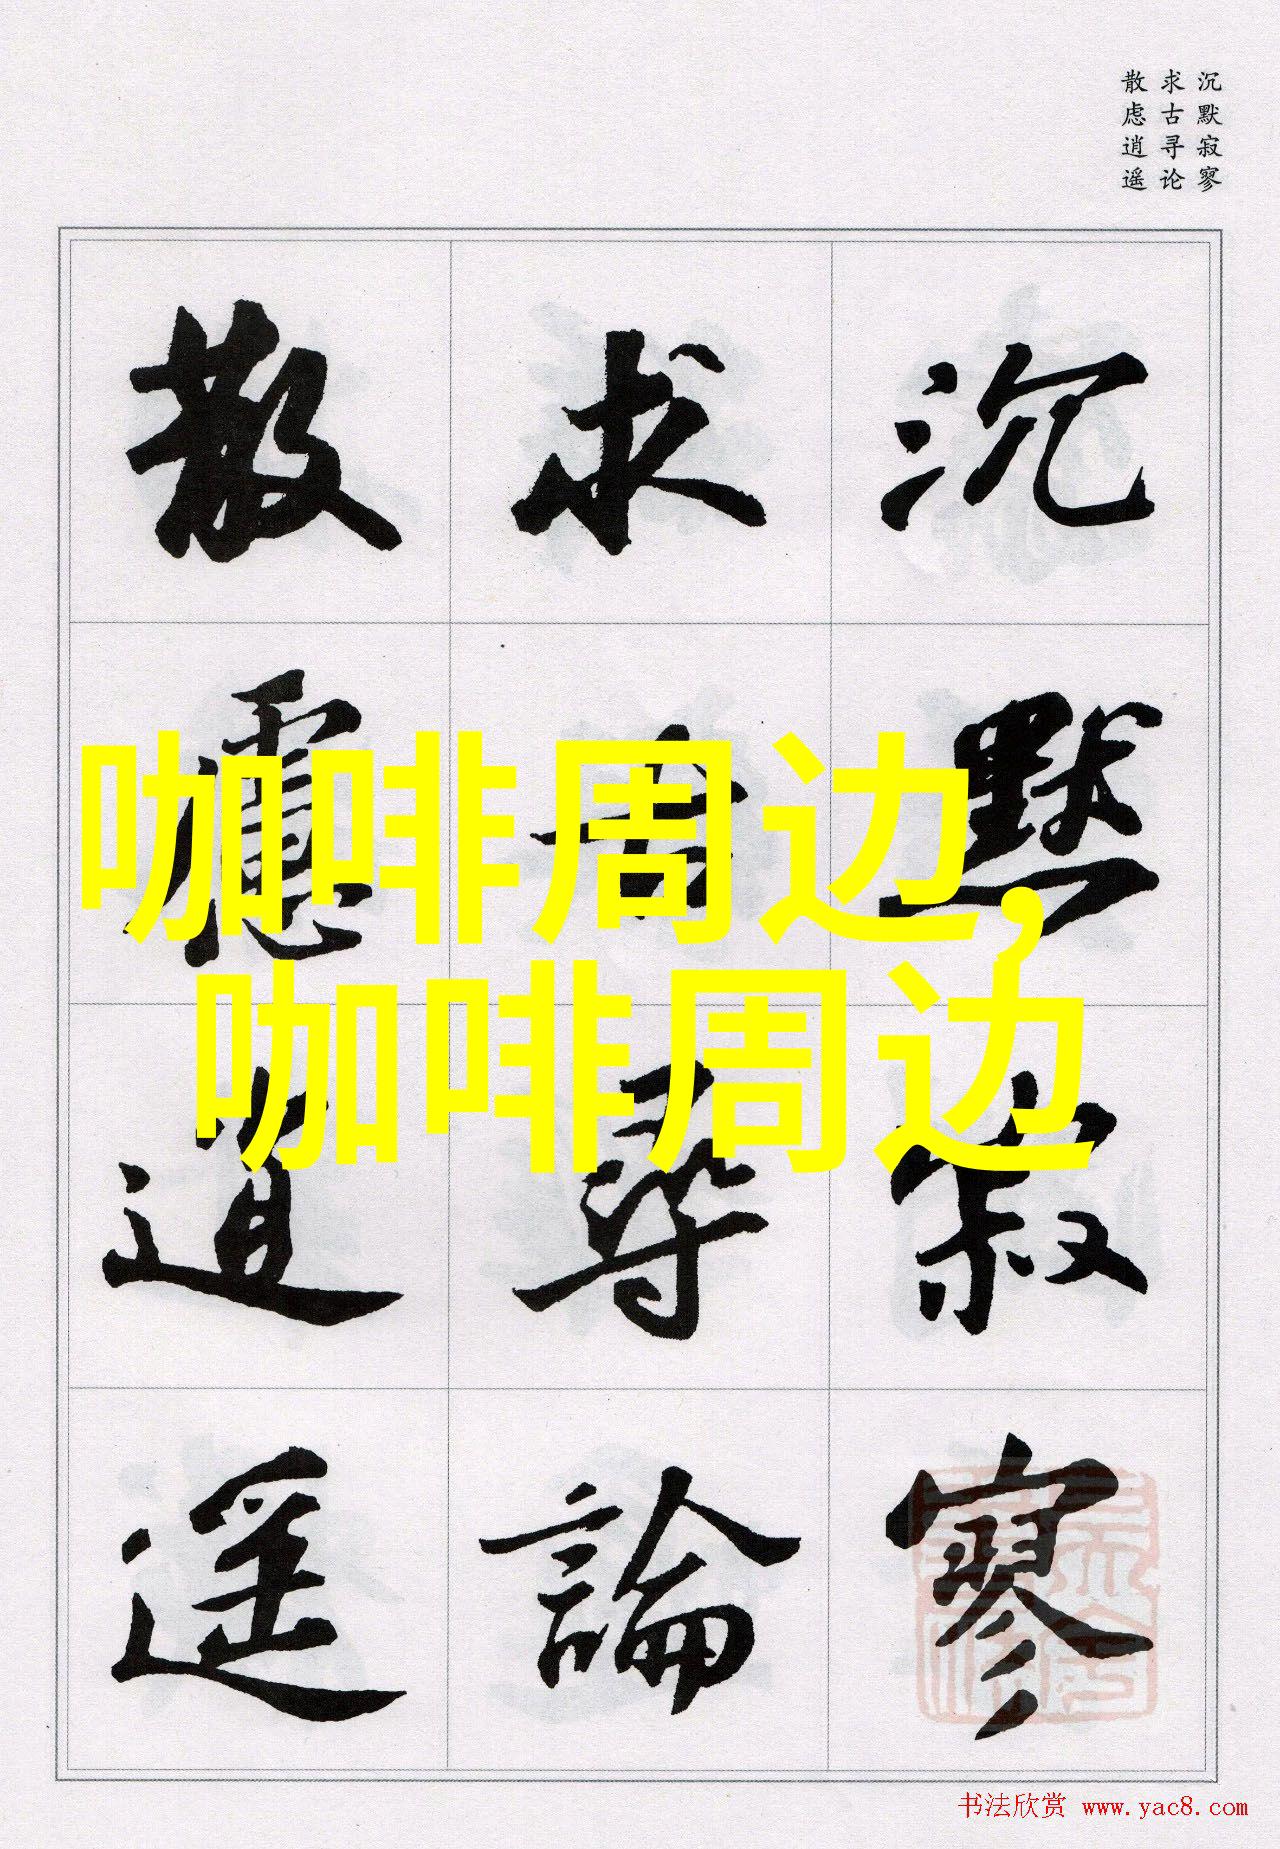 沉默寂寥
求古寻论
散虑逍遥
沉默寂寥
求古尋論
散慮逍遥
咖啡周边,
咖啡周边
书法欣赏 www.yac8.com